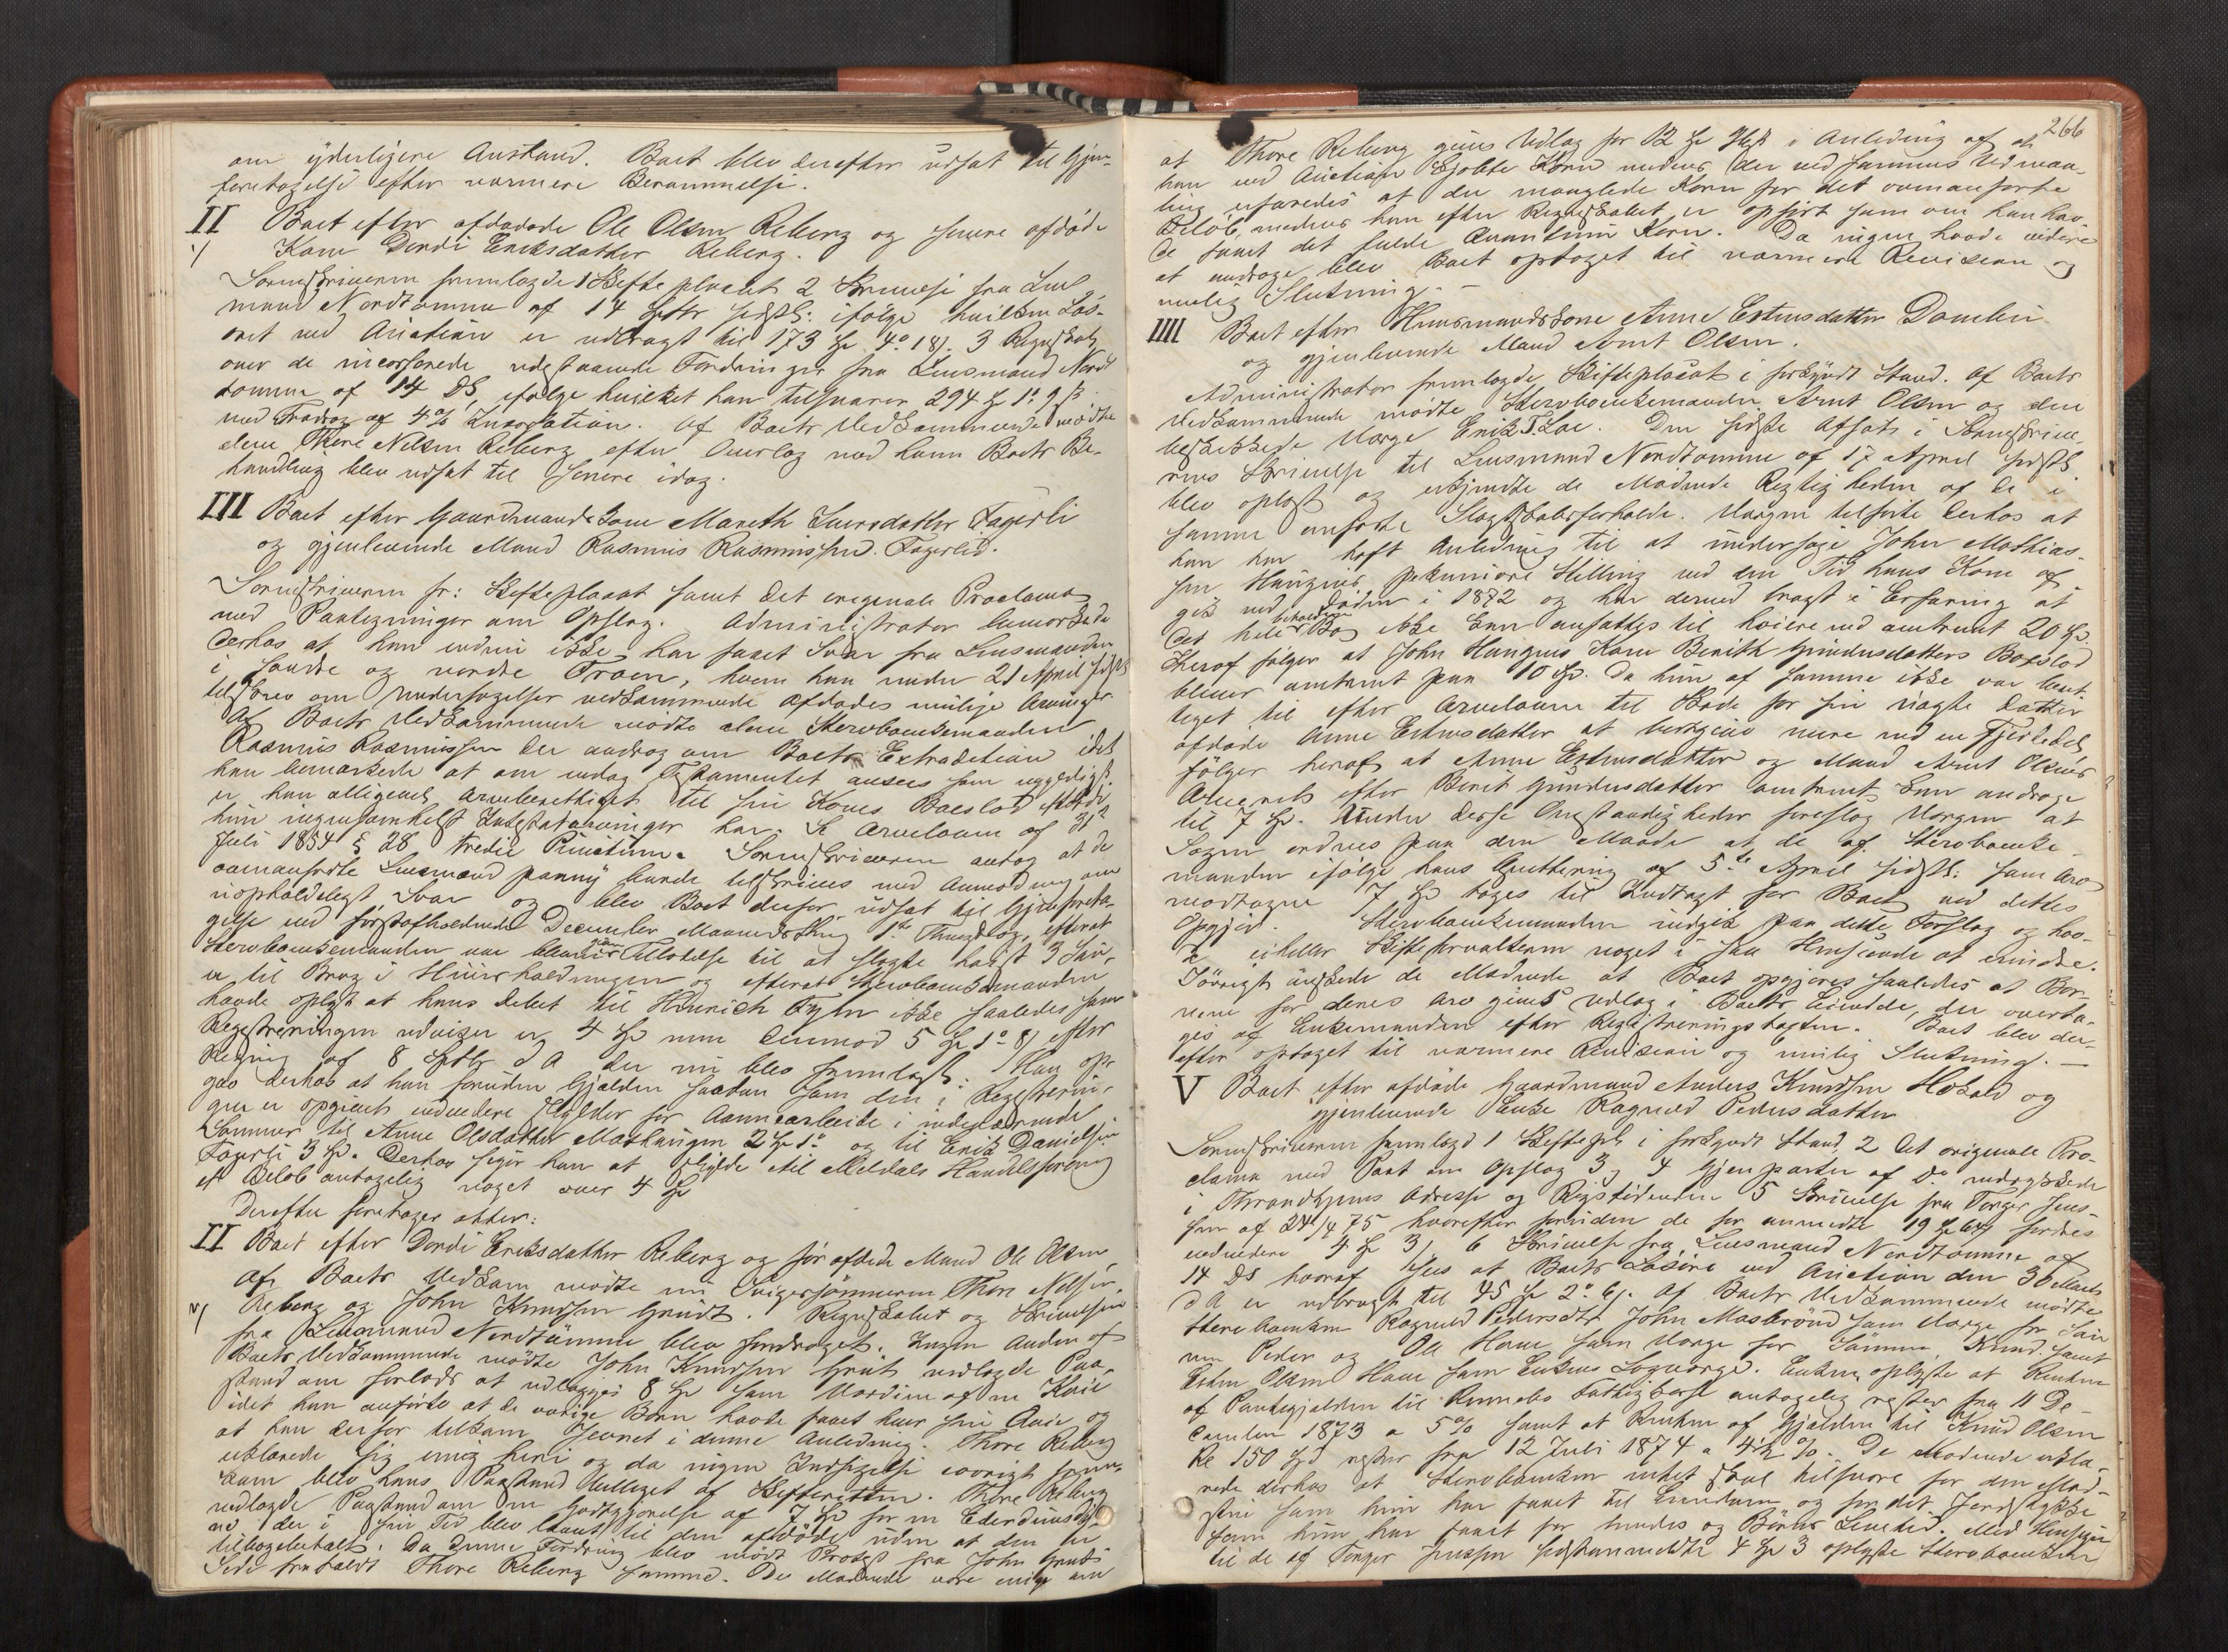 om yderligere Anstand. Boet blev derefter udsat til Gjen-
foretagelse efter nærmere Berammelse.
II Boet efter afdøde Ole Olsen Reberg og senere afdøde
1/ Kone Dordi Eriksdatter Reberg.
Sorenskriveren fremlagde 1 Skifteplacat 2 Skrivelse fra Lens-
mand Nordtømme af 14 Septbr sidstl: ifølge hvilken Løs-
øret ved Auction er udbragt til 173 Spd 4 18/. 3 Regnskab
over de incasserede udestaaende Fordringer fra Lensmand Nord
tømme af 14 ds, ifølge hvilket han tilsvarer 294 Spd 1 9 ß
med Fradrag af 4% Incassation. Af Boets Vedkommende mødte
alene Thore Nilsen Reberg efter Ophold med ham Boets Be-
handling blev udsat til senere idag.
III Boet efter Gaardmandskone Mareth Larsdatter Fagerli
og gjenlevende Mand Rasmus Rasmussen Fagerlid.
Sorenskriveren fr: Skifteplacat samt det originale Proclama
med Paategninger om Opslag. Administrator bemærkede
derhos at han endnu ikke har faaet Svar fra Lensmanden
i søndre og nordre Froen, hvem han under 21 April sidstl
tilskrev om Undersøgelser vedkommende Afdødes mulige Arvinger
Af Boets Vedkommende mødte alene Stervboenkemanden
Rasmus Rasmussen der androg om Boets Extradition idet
han bemærkede at om endog Testamentet ansees som ugyldigt
er han alligevel arveberettiget til sin Kones Boeslod efterdi
hun ingensomhelst Intestatarvinger har. Se Arveloven af 31te
Juli 1854 § 28 tredie Punctum. Sorenskriveren antog at de
ovenanførte Lensmænd paany burde tilskrives med Anmodning om
uopholdeligt Svar og blev Boet derfor udsat til Gjenforeta-
gelse ved førstafholdende December Maanedsthing 1ste Thingdag, efterat
Stervboenkemanden var bleven given Tilladelse til at slagte høist 3 Sau-
er til Brug i Huusholdningen og efterat Stervboenkemanden
havde oplyst at hans Debet til Hinrich Fyhn ikke saaledes som
Registreringen udviser er 4 Spd men derimod 5 Spd 1 8/ efter
Regning af 8 Septbr d A der nu blev fremlagt: Han op-
gav derhos at han foruden Gjælden saadan som den i Registrerin-
gen er opgivet endvidere skylder for Aannearbeide i indeværende
Sommer til Anne Olsdatter Moshaugen 2 Spd 1 og til Erik Danielsen
Fagerli 3 Spd. Derhos siger han at skylde til Meldals Handelsforening
et Beløb antagelig noget over 4 Spd
Derefter foretages atter:
II Boet efter Dordi Eriksdatter Reberg og før afdøde Mand Ole Olsen
Af Boets Vedkom mødte nu Svigersønnerne Thore Nilsen
2/ Reberg og John Knudsen Grindt. Regnskabet og Skrivelsen
fra Lensmand Nordtømme blev foredraget. Ingen Anden af
Boets Vedkommende mødte John Knudsen Grut nedlagde Paa-
stand om forlods at udlægges 8 Spd som Værdien af en Koie
idet han anførte at de øvrige Børn havde faaet hver sin Quie og
at han derfor tilkom Jevnet i denne Anledning. Thore Reberg
erklærede sig enig heri og da ingen Indsigelse iøvrigt frem-
kom blev hans Paastand bevilget af Skifteretten. Thore Reberg
nedlagde Paastand om en Godtgjørelse af 7 Spd for en Ederduns
der i sin Tid blev laant til den afdøde uden at den er
tilbagebetalt. Da denne Fordring blev mødt Protest fra John Gruts
Side frafaldt Thore Reberg samme. De Mødende vare enige om
266
at Thore Reberg gives Udlæg for 12 Spd i Anledning af at
han ved Auction kjøbte Korn medens der ved sammes Udmaa-
ling erfaredes at der manglede Korn for det ovenanførte
Beløb, medens han efter Regnskabet er opført som om han hav
de faaet det fulde Quantum Korn. Da ingen havde videre
at andrage blev Boet optaget til nærmere Revision og
muelig Slutning. —
IIII Boet efter Huusmandskone Anne Estensdatter Dombu
og gjenlevende Mand Arnt Olsen.
Administrator fremlagde Skifteplacat i forkyndt Stand. Af Boets
Vedkommende mødte Stervboenkemanden Arnt Olsen og den
beskikkede Værge Erik T. Loe. Den sidste Afsats i Sorenskrive-
rens Skrivelse til Lensmand Nordtømme af 17 April sidstl
blev oplæst og erkjendte de Mødende Rigtigheden af de i
samme anførte Slægtskabsforholde. Værgen tilførte derhos at
han har haft Anledning til at undersøge John Mathias-
sen Haugens pekuniære Stilling ved den Tid hans Kone af
gik ved Døden i 1872 og har derved bragt i Erfaring at
det hele beholdne Bo ikke kan ansættes til høiere end omtrent 20 Spd
Heraf følger at John Haugens Kone Berith Gundersdatters Boeslod
bliver omtrent paa 10 Spd. Da hun af samme ikke var beret-
tiget til efter Arveloven til Skade for sin uægte Datter
afdøde Anne Estensdatter at bortgive mere end en Fjerdedel
følger heraf at Anne Estensdatter og Mand Arnt Olsens
Arveret efter Berit Gundersdatter omtrent kan andrage
til 7 Spd. Under disse Omstændigheder foreslog Værgen at
Sagen ordnes paa den Maade at de af Stervboenke-
manden ifølge hans Quittering af 5te April sidstl: som Arv
modtagne 7 Spd tages til Indtægt for Boet ved dettes
Opgjør. Stervboenkemanden indgik paa dette Forslag og hav-
de eiheller Skifteforvalteren noget i saa Henseende at erindre.
Iøvrigt ønskede de Mødende at Boet opgjøres saaledes at Bør-
nene for deres Arv gives Udlæg i Boets Eiendele, der overta-
ges af Enkemanden efter Registreringstaxten. Boet blev der-
efter optaget til nærmere Revision og muelig Slutning. —
V Boet efter afdøde Gaardmand Anders Knudsen Hokold og
gjenlevende Enke Ragnild Pedersdatter
Sorenskriveren fremlagd 1 Skiftepl i forkyndt Stand, 2 det originale Pro-
clama med Paat om Opslag 3 og 4 Gjenparter af Do indrykkede
i Throndhjems Adresse og Rigstidenden 5 Skrivelse fra Tonger Jens-
sen af 24/4 75 hvorefter foruden de før anmeldte 19 Spd fordres
endvidere 4 Spd 3/. 6 Skrivelse fra Lensmand Nordtømme af
14 ds hvoraf sees at Boets Løsøre ved Auction den 30 Marts
d A er udbragt til 45 Spd 2 6/. Af Boets Vedkommende mødte
Stervboenken Ragnild Pedersdtr John Mosbrønd som Værge for Søn
nen Peder og Ole Hove som Værge for Sønnen Knud samt
Esten Olsen Hove som Enkens Lagværge. Enken oplyste at Renten
af Pantegjælden til Rennebo Fattigkasse antagelig rester fra 11 De-
cember 1873 a 5% samt at Renten af Gjælden til Knud Olsen
Re 150 Spd rester fra 12 Juli 1874 a 4½ %. De Mødende erklæ-
rede derhos at Stervboenken intet skal tilsvare for den Mod-
som hun har faaet til Eiendom og for det Jordstykke
som hun har faaet for hendes og Børns Levetid. Med Hensyn
til de af Tonger Jenssen sidstanmeldte 4 Spd 3 oplyste Stervboenken